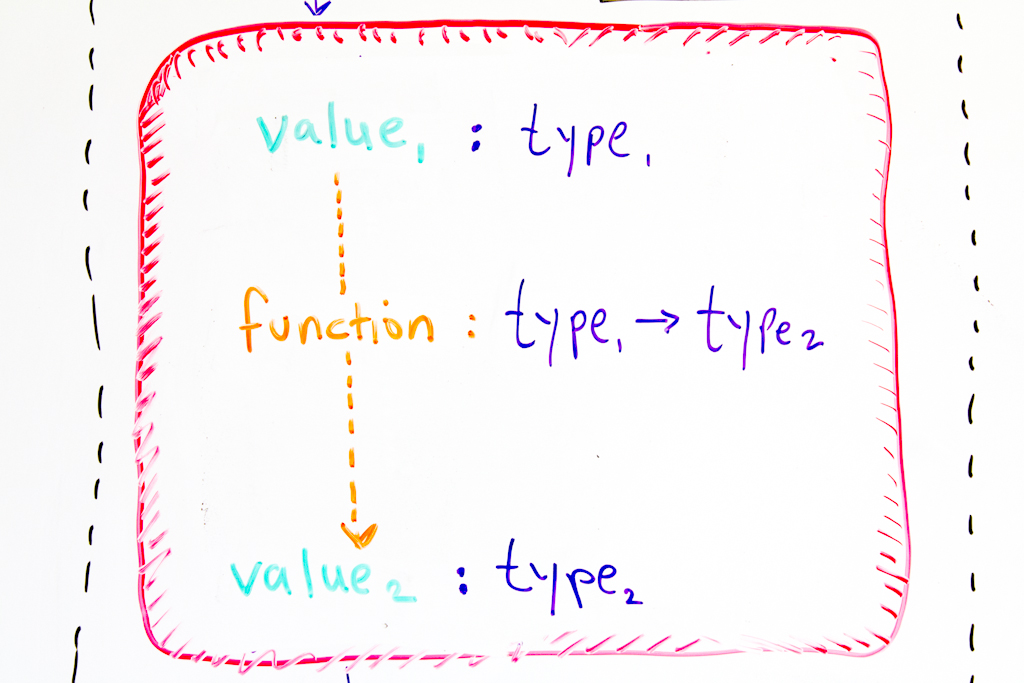 value₁ : type₁
function : type₁ → type₂
value₂ : type₂